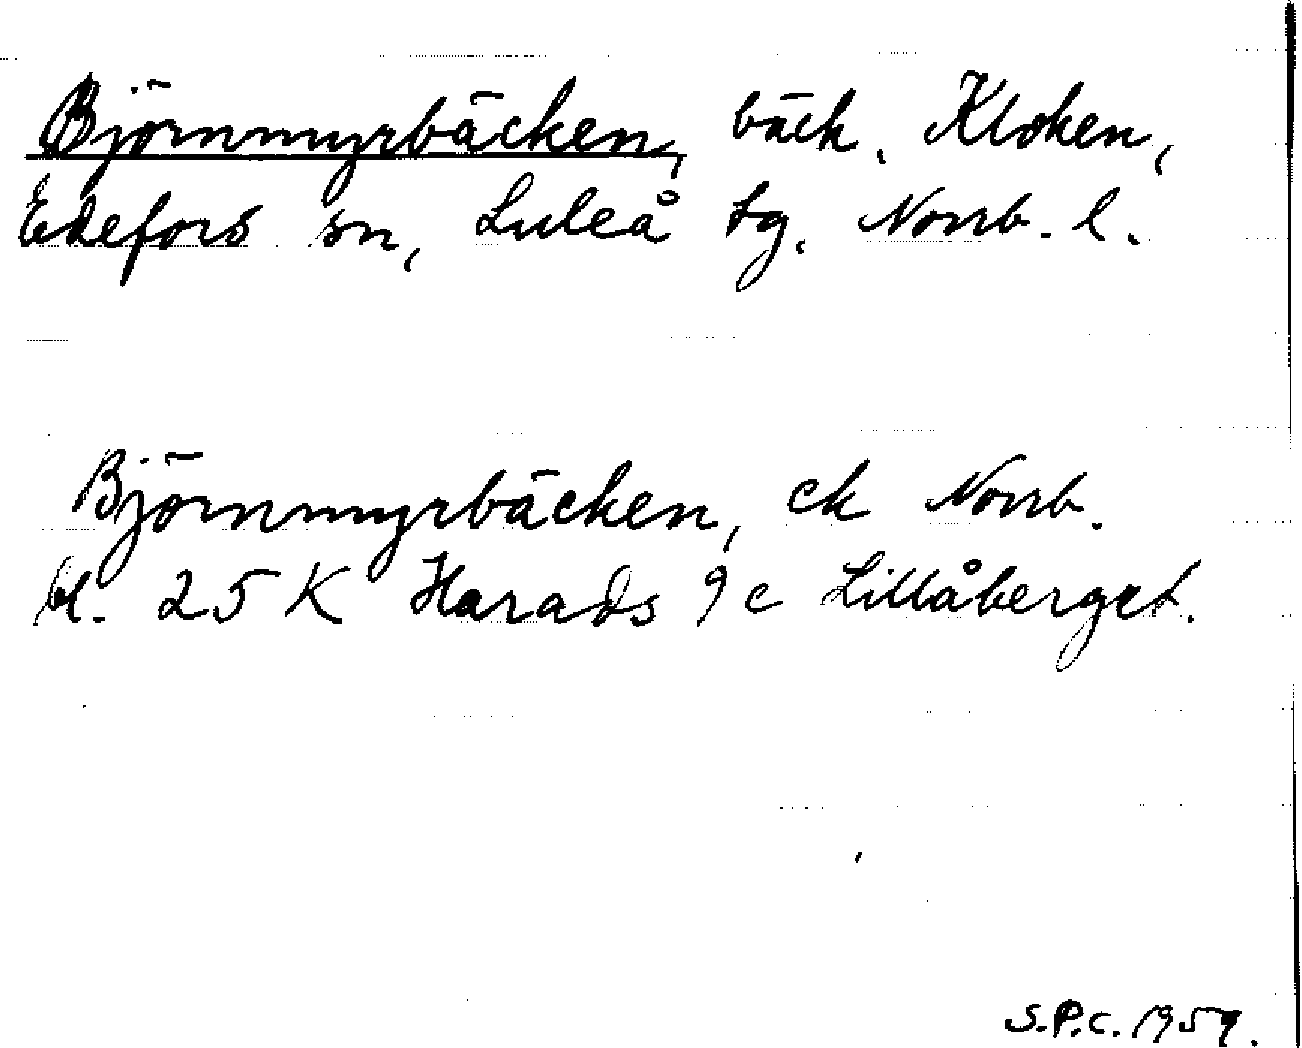 Björnmyrbäcken, bäck, Kloken,
Edefors sn, Luleå tg. Norrb. l.
Björnmyrbäcken, ek Norrb.
bl. 25 K Harads 9 c Lillåberget.
S.P.C. 1959.